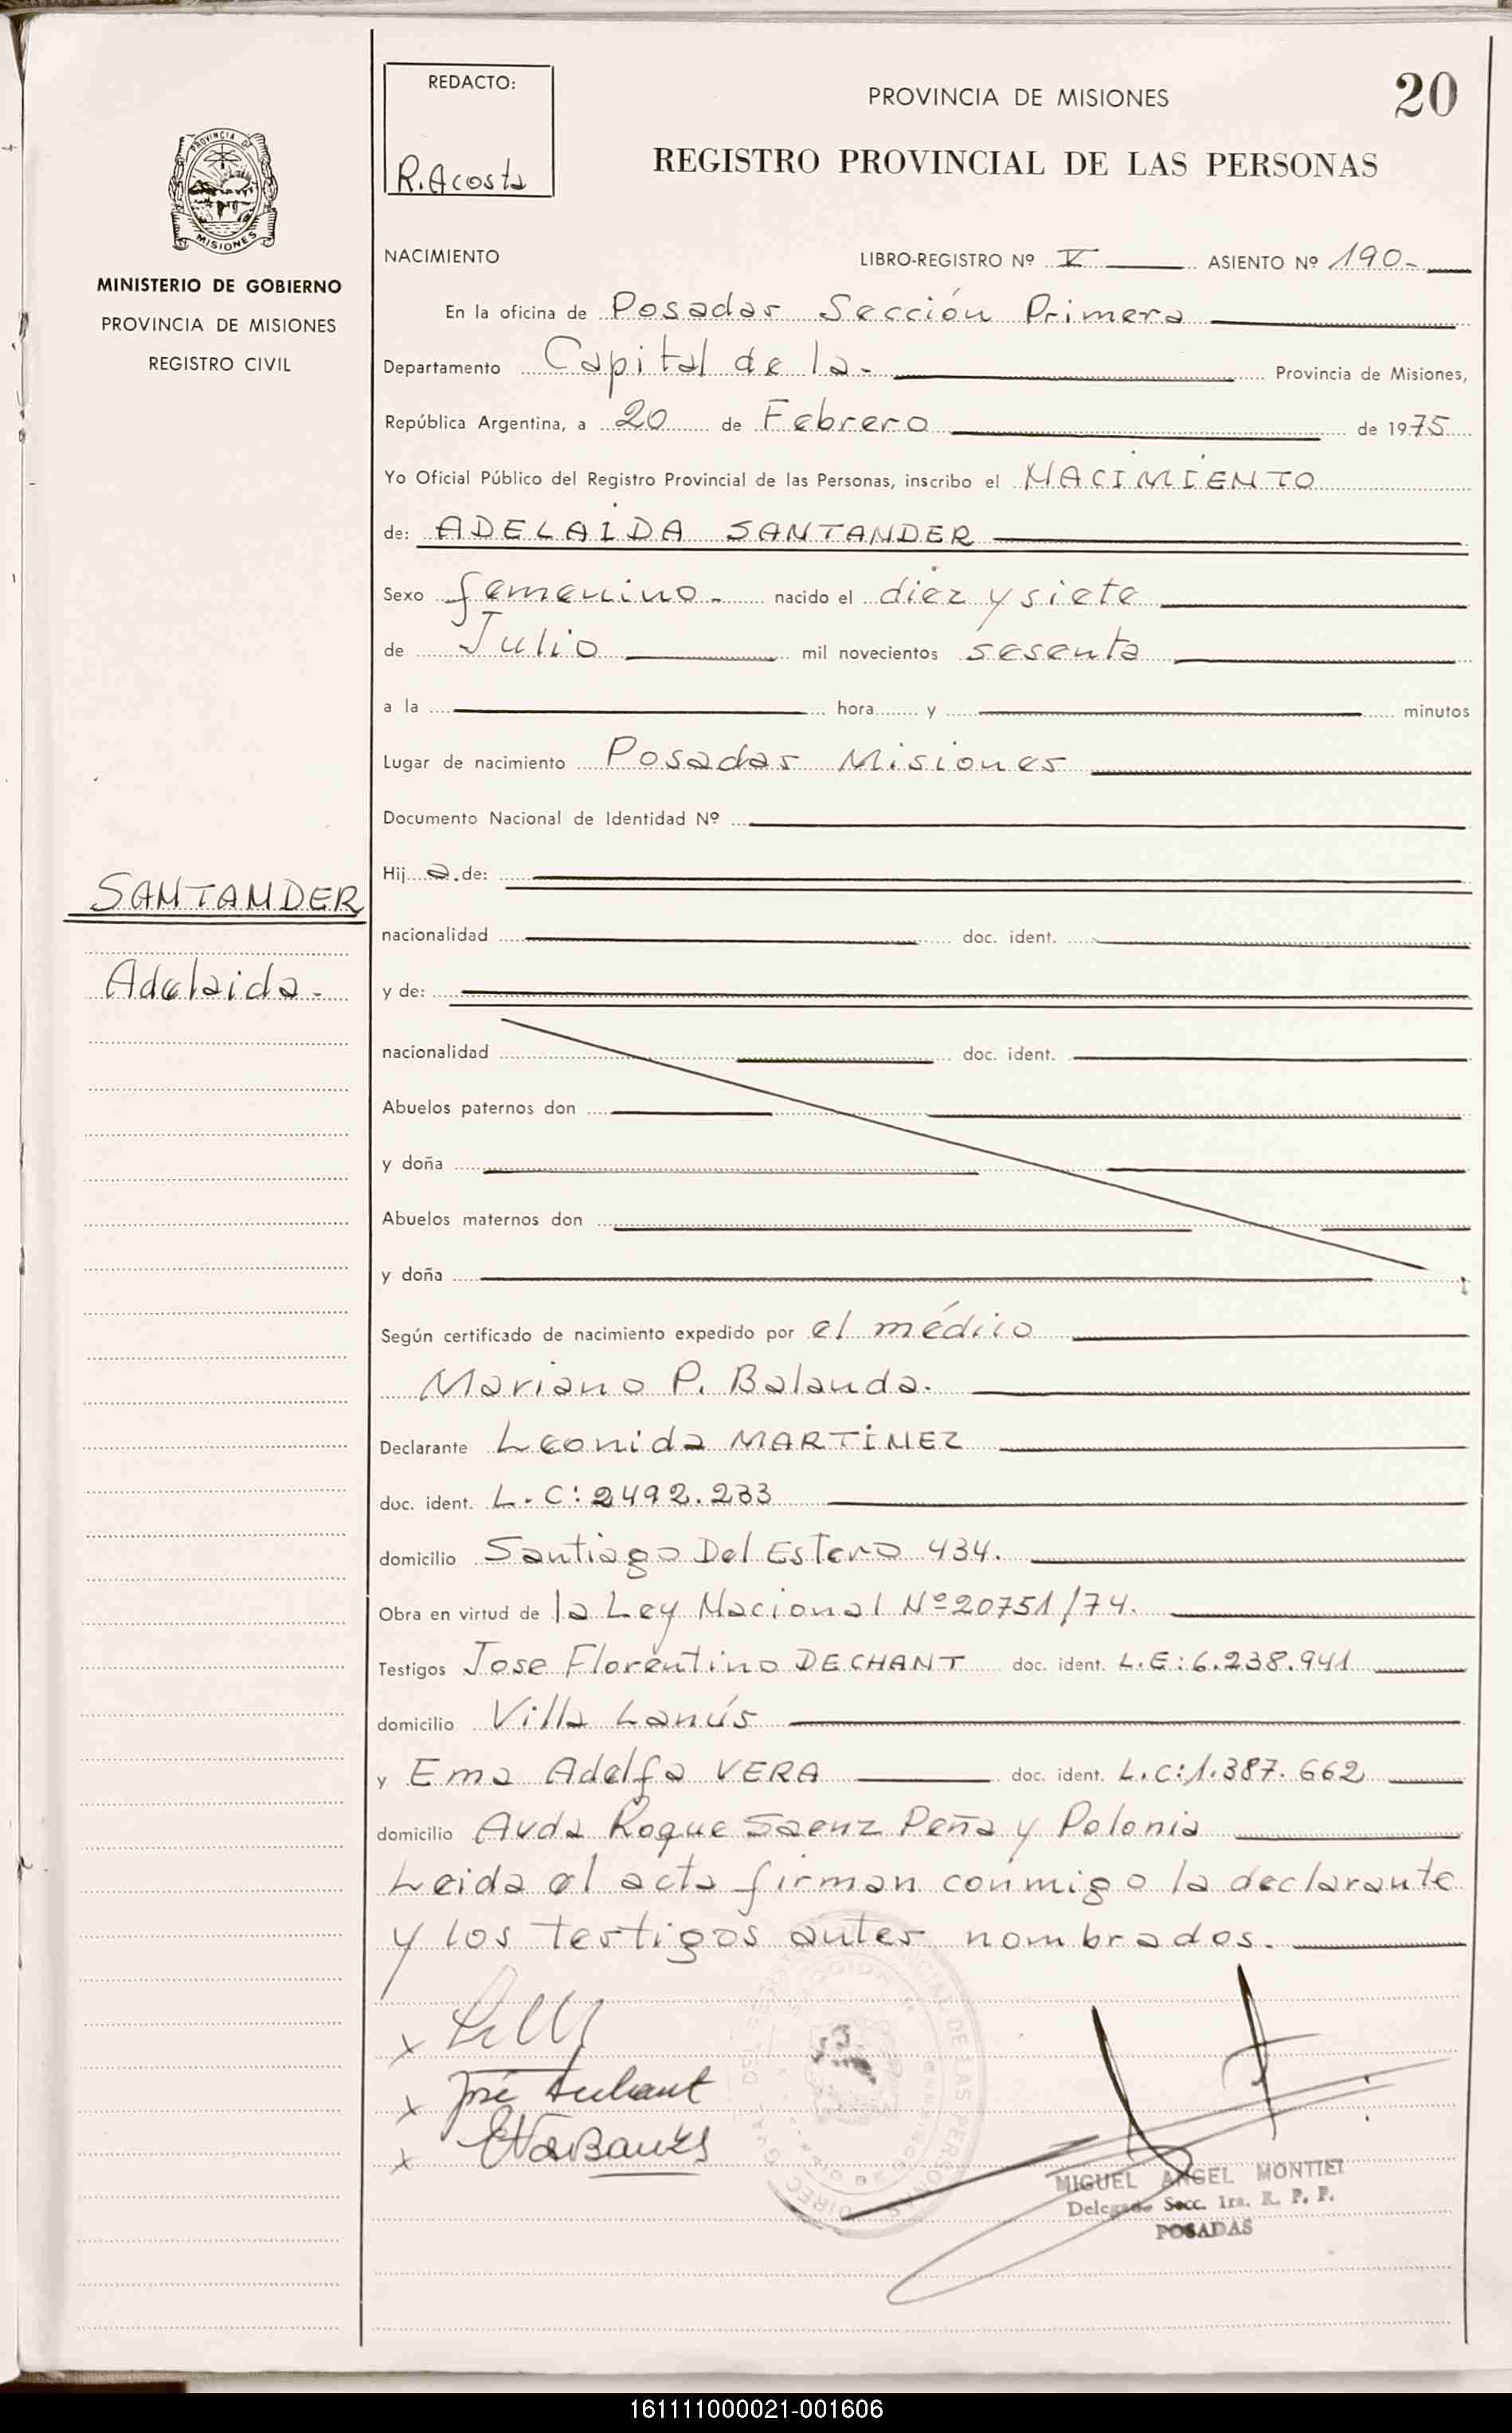 REDACTO:
R. Acosta
PROVINCIA DE MISIONES
20
REGISTRO PROVINCIAL DE LAS PERSONAS
PROVINCIA DE
MISIONES
MINISTERIO DE GOBIERNO
PROVINCIA DE MISIONES
REGISTRO CIVIL
NACIMIENTO LIBRO-REGISTRO Nº V ASIENTO Nº 190-
En la oficina de Posadas Sección Primera
Departamento Capital de la- Provincia de Misiones,
República Argentina, a 20 de Febrero de 1975
Yo Oficial Público del Registro Provincial de las Personas, inscribo el NACIMIENTO
de: ADELAIDA SANTANDER
Sexo femenino- nacido el diez y siete
de Julio mil novecientos sesenta
a la hora y minutos
Lugar de nacimiento Posadas Misiones
Documento Nacional de Identidad Nº
Hij a de:
SANTANDER
nacionalidad doc. ident.
Adelaida-
y de:
nacionalidad doc. ident.
Abuelos paternos don
y doña
Abuelos maternos don
y doña
Según certificado de nacimiento expedido por el médico
Mariano P. Balanda.
Declarante Leonida MARTINEZ
doc. ident. L.C: 2492.233
domicilio Santiago Del Estero 434.
Obra en virtud de la Ley Nacional Nº 20751/74.
Testigos Jose Florentino DECHANT doc. ident. L.E: 6.238.941
domicilio Villa Lanús
y Ema Adelfa VERA doc. ident. L.C: 1.387.662
domicilio Avda Roque Saenz Peña y Polonia
Leida el acta firman conmigo la declarante
y los testigos antes nombrados.
MIGUEL ANGEL MONTIEL
Delegado Secc. 1ra. R. P. P.
POSADAS
161111000021-001606